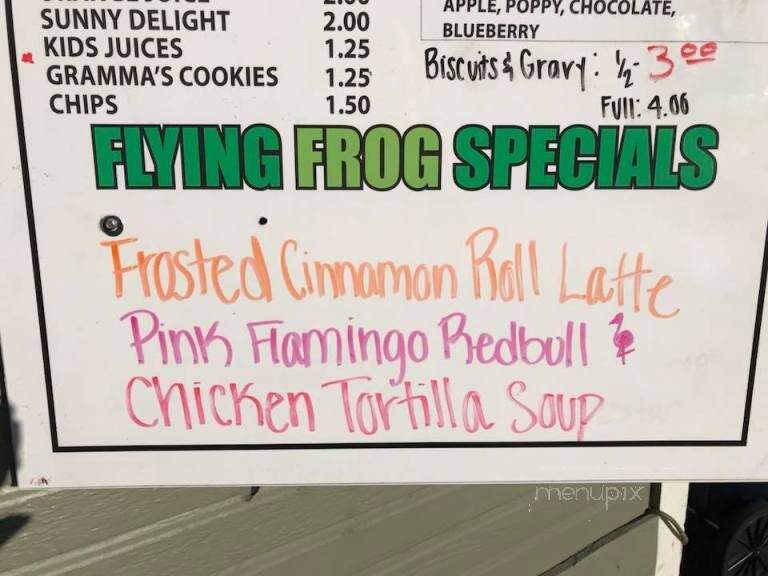 SUNNY DELIGHT 2.00
KIDS JUICES 1.25
GRAMMA'S COOKIES 1.25
CHIPS 1.50
APPLE, POPPY, CHOCOLATE,
BLUEBERRY
Biscuits & Gravy: ½ - 3.00
Full: 4.00
FLYING FROG SPECIALS
Frosted Cinnamon Roll Latte
Pink Flamingo Redbull
Chicken Tortilla Soup
menupix